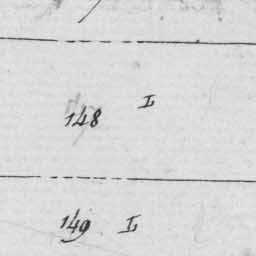 148 L
149 L